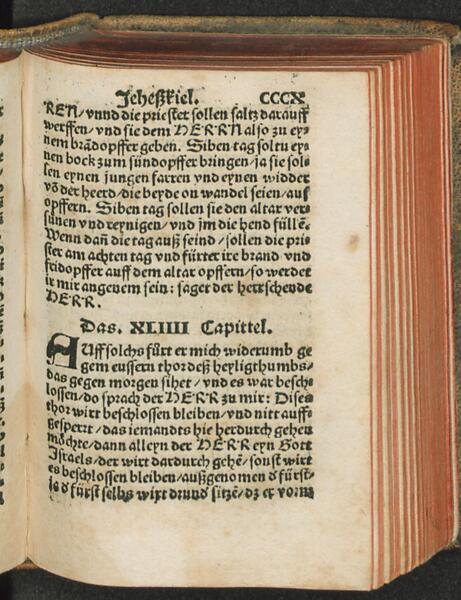 Jeheßkiel. CCCX
REN/ vnnd die priester sollen saltz darauff
werffen/ vnd sie dem HERRN also zu ey⸗
nem brādopffer geben. Siben tag soltu ey⸗
nen bock zum sündopffer bringen/ ja sie sol⸗
len eynen jungen farren vnd eynen widder
vō der heerd/ die beyde on wandel seien/ auf
opffern. Siben tag sollen sie den altar ver⸗
sünen vnd reynigen/ vnd jm die hend füllē.
Wenn dañ die tag auß seind/ sollen die prie
ster am achten tag vnd fürter ire brand vnd
fridopffer auff dem altar opffern/ so werdet
ir mir angenem sein: saget der herrschende
HERR.
Das. XLIIII Capittel.
AUff solchs fürt er mich widerumb ge
gem eussern thor deß heyligthumbs/
das gegen morgen sihet/ vnd es war besch⸗
lossen/ do sprach der HERR zu mir: Dises
thor wirt beschlossen bleiben/ vnd nitt auff⸗
gesperrt/ das iemandts hie herdurch gehen
möchte/ dann alleyn der HERR eyn Gott
Israels/ der wirt dardurch gehē/ sonst wirt
es beschlossen bleiben/ außgenomen d̄ fürst⸗
d̄ fürst selbs wirt drund sitzē/ dz er vorm